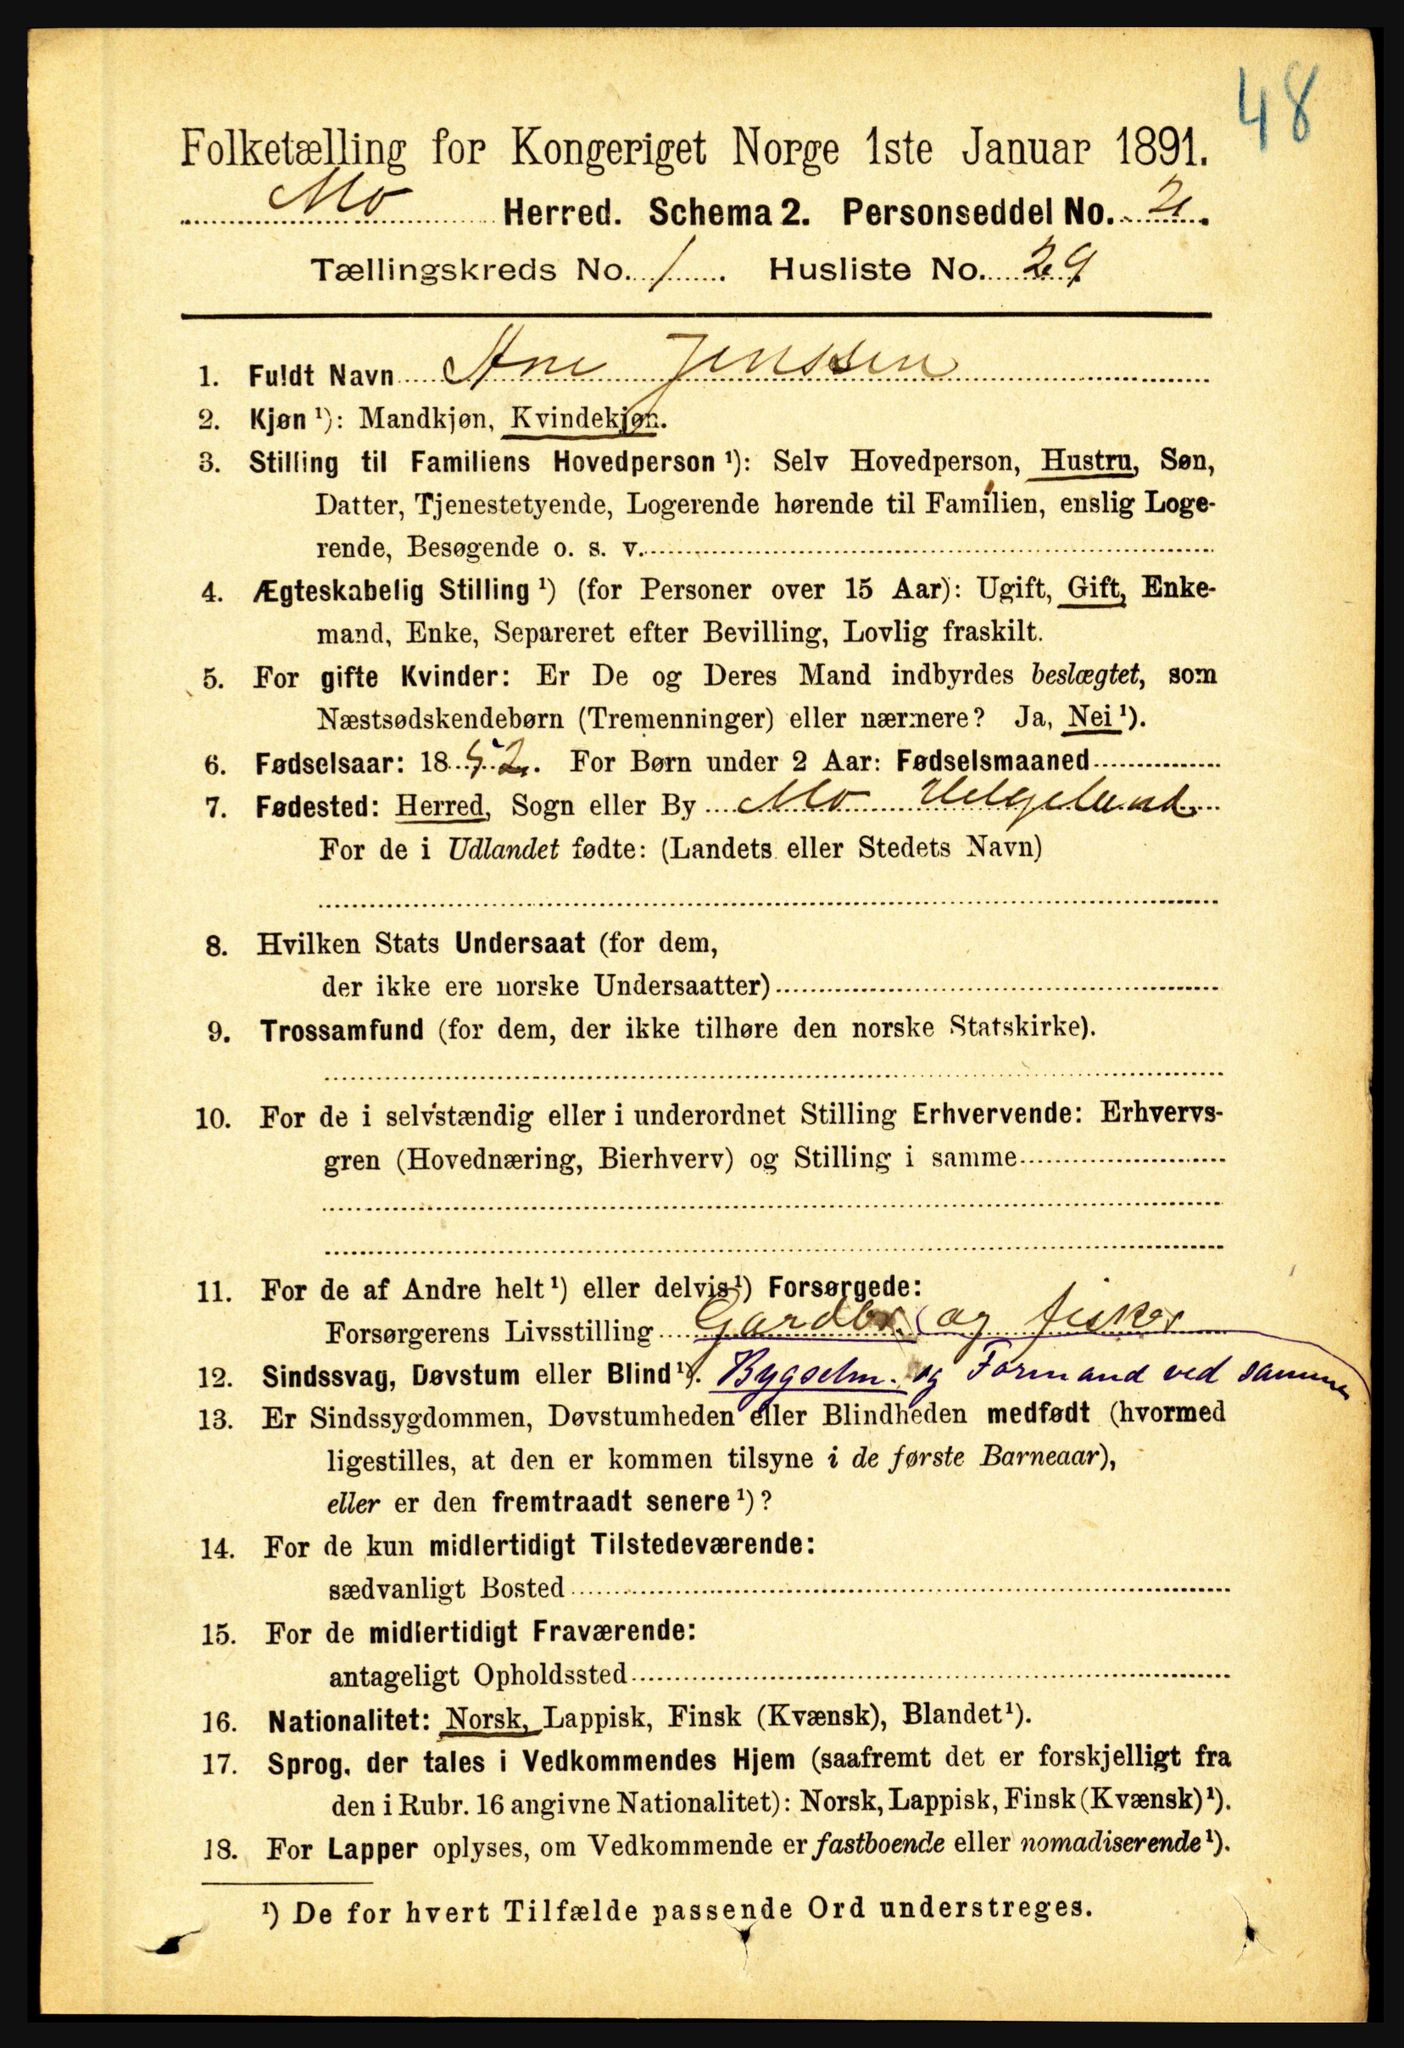 48
Folketælling for Kongeriget Norge 1ste Januar 1891.
Mo Herred. Schema 2. Personseddel No. 2.
Tællingskreds No. 1. Husliste No. 29
1. Fuldt Navn Ane Jenssen
2. Kjøn ¹): Mandkjøn, Kvindekjøn.
3. Stilling til Familiens Hovedperson ¹): Selv Hovedperson, Hustru, Søn,
Datter, Tjenestetyende, Logerende hørende til Familien, enslig Loge-
rende, Besøgende o. s. v.
4. Ægteskabelig Stilling ¹) (for Personer over 15 Aar): Ugift, Gift, Enke-
mand, Enke, Separeret efter Bevilling, Lovlig fraskilt.
5. For gifte Kvinder: Er De og Deres Mand indbyrdes beslægtet, som
Næstsødskendebørn (Tremenninger) eller nærmere? Ja, Nei ¹).
6. Fødselsaar: 1852. For Børn under 2 Aar: Fødselsmaaned
7. Fødested: Herred, Sogn eller By Mo Helgeland.
For de i Udlandet fødte: (Landets eller Stedets Navn)
8. Hvilken Stats Undersaat (for dem,
der ikke ere norske Undersaatter)
9. Trossamfund (for dem, der ikke tilhøre den norske Statskirke).
10. For de i selvstændig eller i underordnet Stilling Erhvervende: Erhvervs-
gren (Hovednæring, Bierhverv) og Stilling i samme
11. For de af Andre helt ¹) eller delvis ¹) Forsørgede:
Forsørgerens Livsstilling Gardbr. og fisker
12. Sindssvag, Døvstum eller Blind ¹). Bygselm. og Formand ved samme
13. Er Sindssygdommen, Døvstumheden eller Blindheden medfødt (hvormed
ligestilles, at den er kommen tilsyne i de første Barneaar),
eller er den fremtraadt senere ¹)?
14. For de kun midlertidigt Tilstedeværende:
sædvanligt Bosted
15. For de midlertidigt Fraværende:
antageligt Opholdssted
16. Nationalitet: Norsk, Lappisk, Finsk (Kvænsk), Blandet ¹).
17. Sprog, der tales i Vedkommendes Hjem (saafremt det er forskjelligt fra
den i Rubr. 16 angivne Nationalitet): Norsk, Lappisk, Finsk (Kvænsk) ¹).
18. For Lapper oplyses, om Vedkommende er fastboende eller nomadiserende ¹).
¹) De for hvert Tilfælde passende Ord understreges.